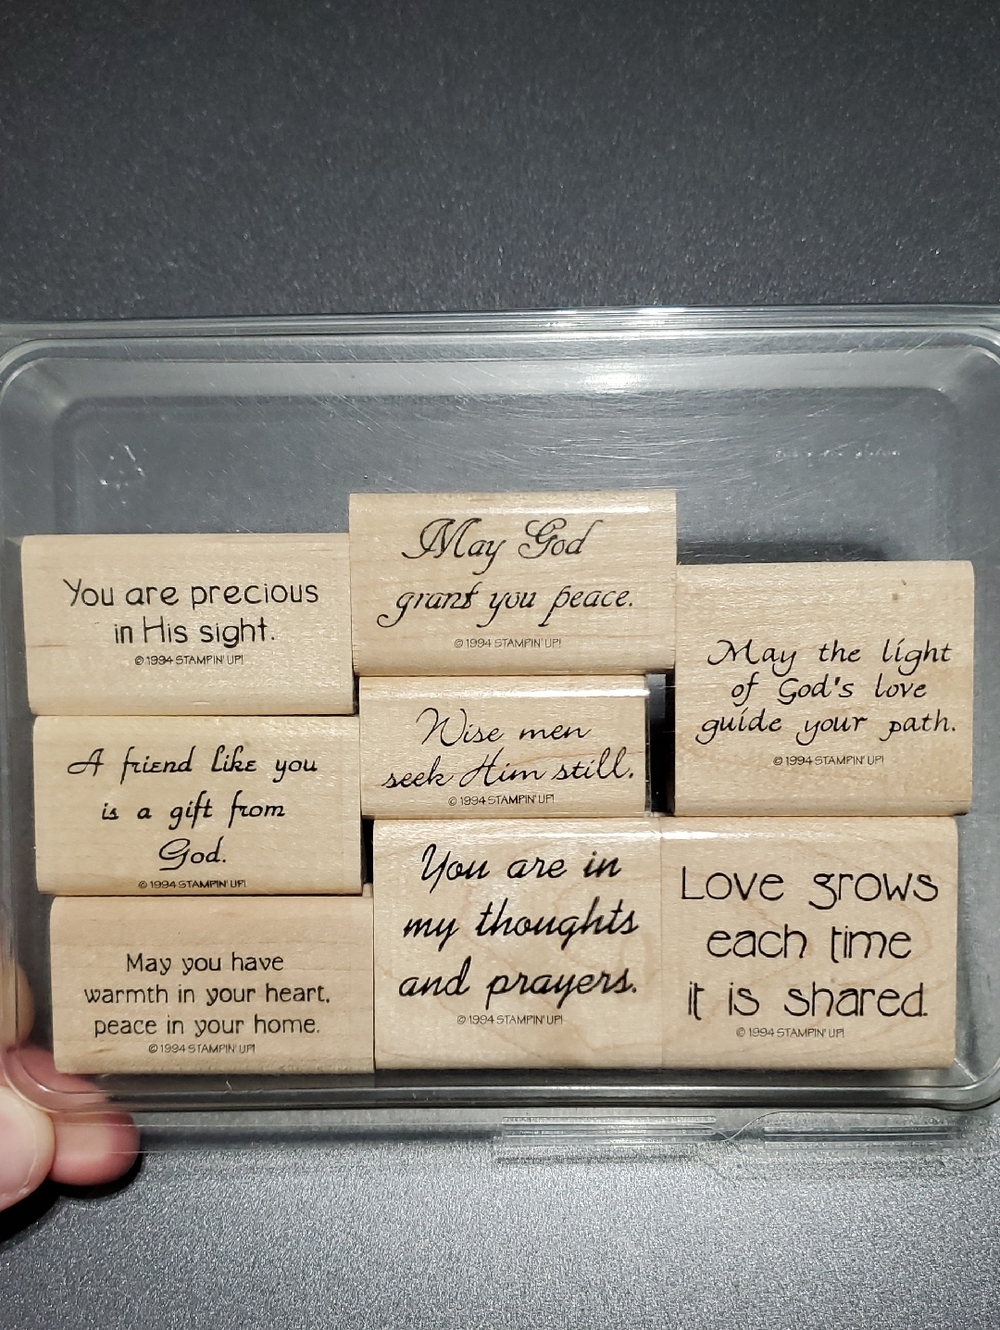 You are precious
in His sight.
© 1994 STAMPIN' UP!
May God
grant you peace.
© 1994 STAMPIN' UP!
May the light
of God's love
guide your path.
© 1994 STAMPIN' UP!
A friend like you
is a gift from
God.
© 1994 STAMPIN' UP!
Wise men
seek Him still.
© 1994 STAMPIN' UP!
May you have
warmth in your heart,
peace in your home.
© 1994 STAMPIN' UP!
You are in
my thoughts
and prayers.
© 1994 STAMPIN' UP!
Love grows
each time
it is shared.
© 1994 STAMPIN' UP!